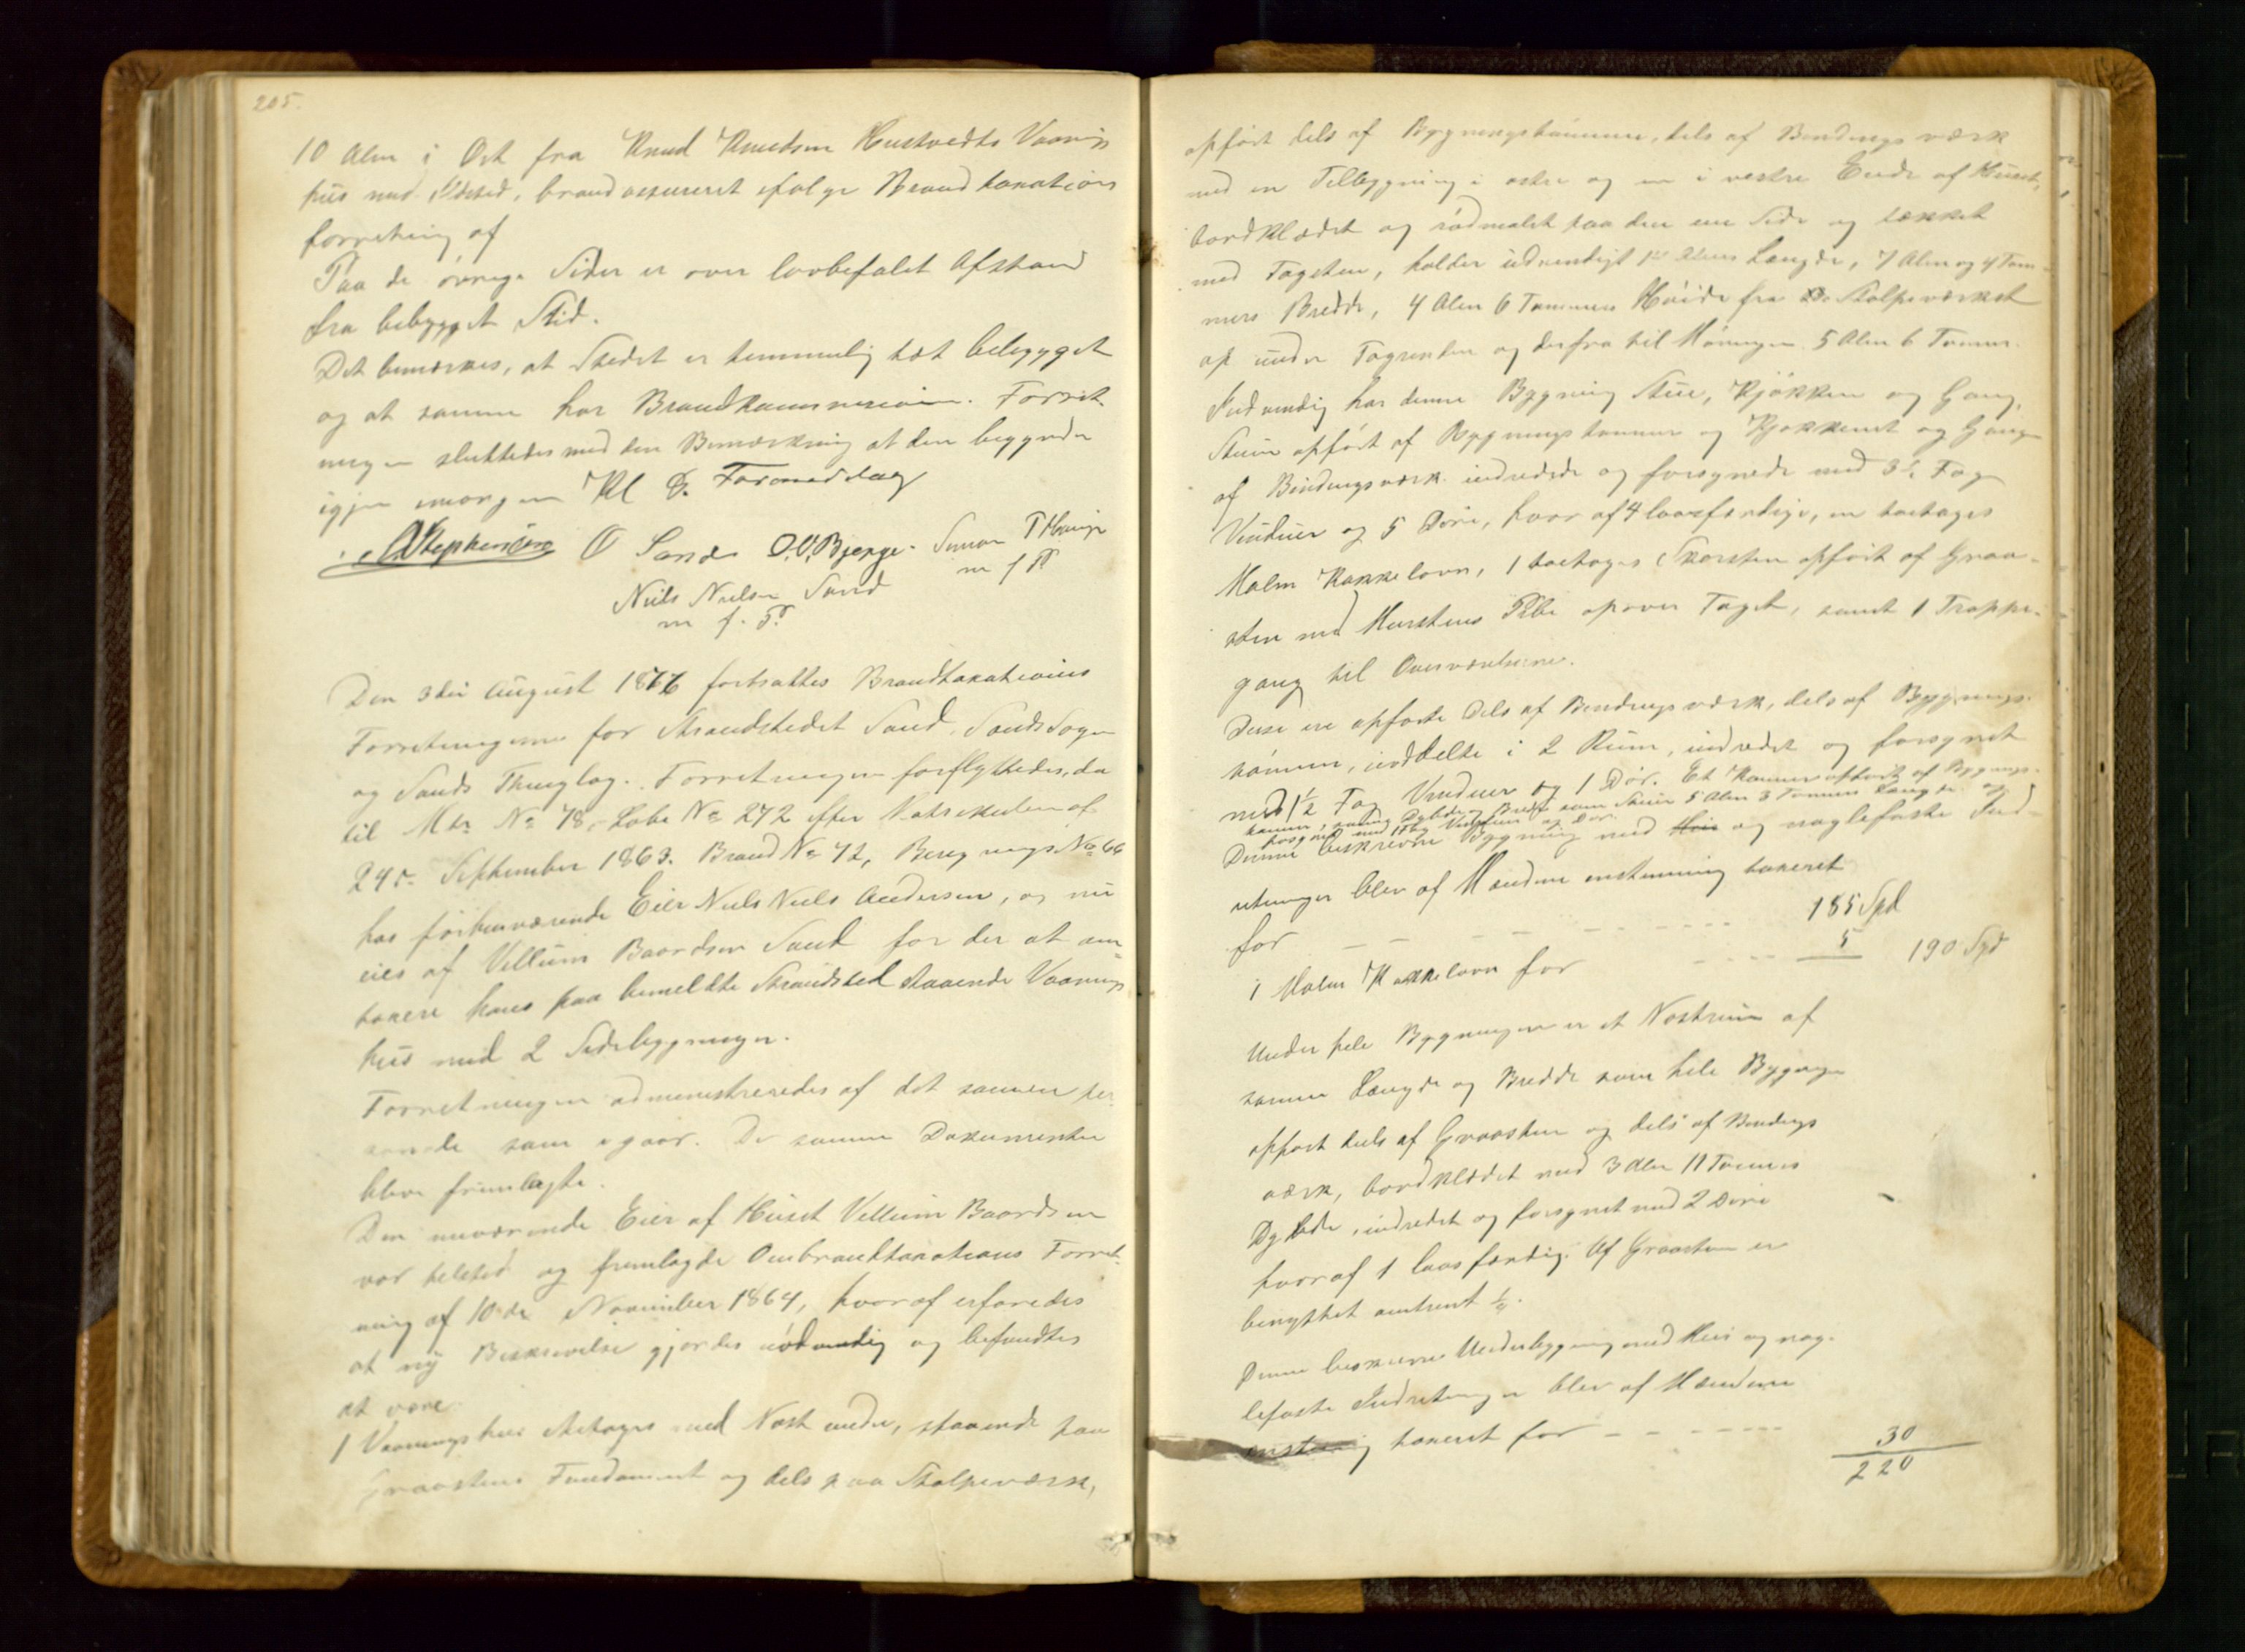 205.
10 Alen i Øst fra Knud Knudsen Hustvedts Vaanings
hus med Ildsted, brandassureret ifølge Brandtaxations
forretning af
Paa de øvrige Sider er over lovbefalet Afstand
fra bebygget Sted.
Det bemærkes, at Stedet er temmelig tæt bebygget
og at samme har Brandkommission. Forret-
ningen sluttedes med den Bemærkning at den begynder
igjen imorgen Kl 8. Formiddag
Stephensen O Sande O.O. Bjerge. Simon T
m f P
Niels Nielsen Sand
m f. P.
Den 3die August 1876 fortsattes Brandtaxations
Forretningerne for Strandstedet Sand, Sands Sogn
og Sands Thinglag. Forretningen forflyttedes, da
til Mtr No 78, Løbe No 272 efter Matrikulen af
24de September 1863. Brand No 72, Bereg nings No 66
hos forhenværende Eier Niels Niels Andersen, og nu
eies af Vellum Baardsen Sand for der at om
taxere hans paa bemeldte Strandsted staaende Vaanings
hus med 2 Sidebygninger.
Forretningen administreredes af det samme per
sonale som igaar. De samme Dokumenter
bleve fremlagte.
Den nuværende Eier af Huset Vellum Baardsen
var tilsted og fremlagde Ombrandtaxations Forret-
ning af 10de November 1864, hvoraf erfaredes
at ny Beskrivelse gjordes nødvendig og befandtes
at være
1 Vaaningshus 1etages med Nøst under, staaende paa
Graastens Fundament og dels paa Stolpeværk,
opført dels af Bygningstømmer, dels af Bindingsværk
med en Tilbygning i østre og en i vestre Ende af Huset,
bordklædt og rødmalet paa den ene Side og tækket
med Tagsten, holder udvendigt Alens Længde, 7 Alen og 4 Tom-
mers Bredde, 4 Alen 6 Tommers Høide fra Stolpeværket
op under Tagrenden og derfra til Møningen 5 Alen 6 Tommer.
Indvendig har denne Bygning Stue, Kjøkken og Gang,
Stuen opført af Bygningstømmer og Kjøkkenet og Gangen
af Bindingsværk indredede og forsynede med 3½ Fag
Vinduer og 5 Døre, hvor af 4 laasfærdige, en toetages
Malm Kakkelovn, 1 toetages Skorsten opført af Graa-
sten med Murstens Pibe opover Taget, samt 1 Trappe-
gang til Overværelserne.
Disse ere opførte dels af Bindingsværk, dels af Bygnings-
tømmer, inddelte i 2 Rum, indredet og forsynet
med 1½ Fag Vinduer og 1 Dør. Et Kammer opført af Bygnings-
tømmer, samme Dybde og Bredde som Stuen 5 Alen 3 Tommers Længde og
forsynet med 1 Fag Vinduer og Dør.
Denne beskrevne Bygning med Hus og naglefaste Ind-
retninger blev af Mændene enstemmig taxeret
for 185 Spd
1 Malm Kakkelovn for 5 190 Spd
Under hele Bygningen er et Nøstrum af
samme Længde og Bredde som hele Bygningen
opført dels af Graasten og dels af Bindings
værk, bordklædt med 3 Alen 11 Tommers
Dybde, indredet og forsynet med 2 Døre
hvoraf 1 laasfærdig. Af Graasten er
benyttet omtrent ¼.
Denne beskrevne Underbygning med Hus og nag-
lefaste Indretninger blev af Mændene
enstemmig taxeret for 30
220